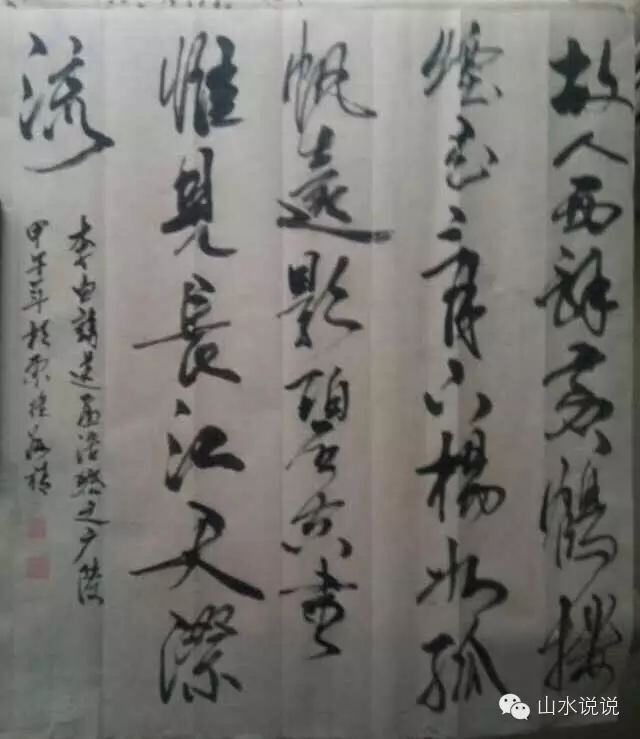 故人西辞黄鹤楼
烟花三月下杨州孤
帆远影碧空尽
惟见长江天际
流
李白诗送孟浩然之广陵
甲午年
山水说说